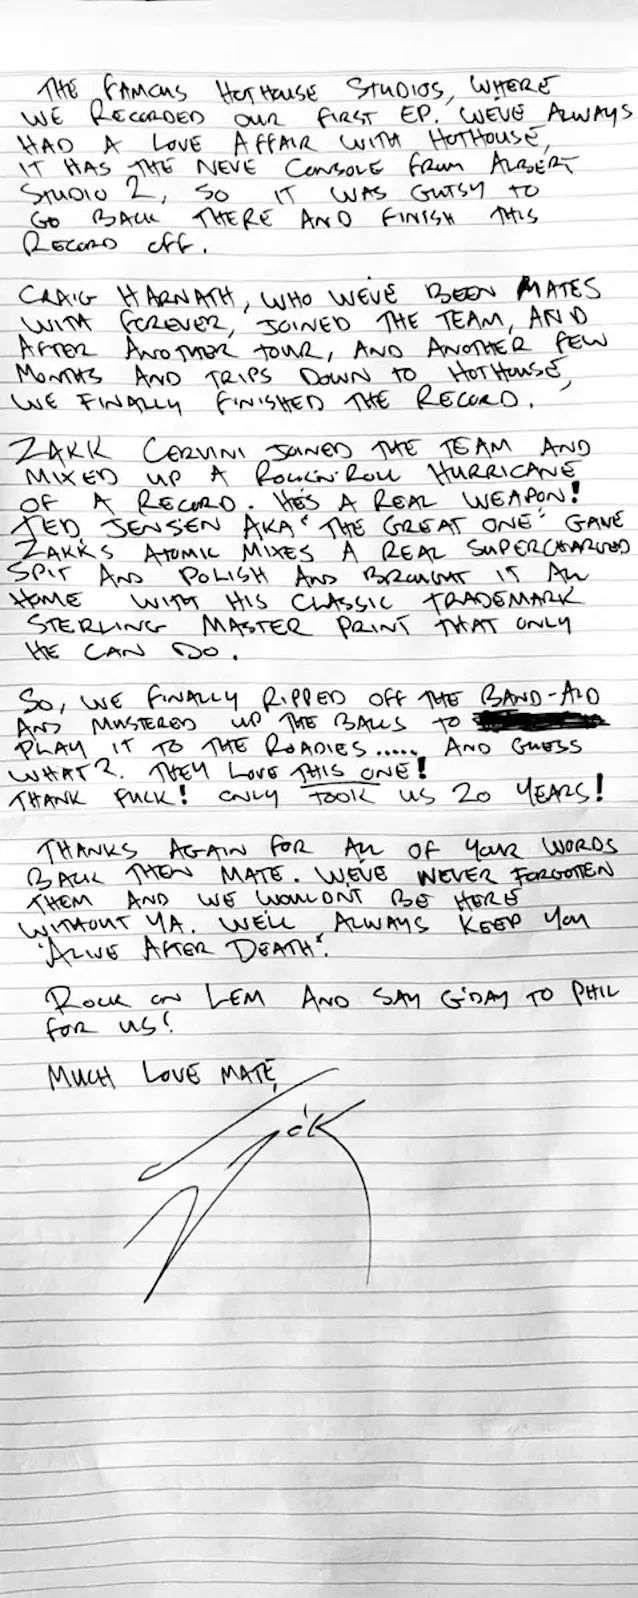 THE FAMOUS HOTHOUSE STUDIOS, WHERE
WE RECORDED OUR FIRST EP. WE'VE ALWAYS
HAD A LOVE AFFAIR WITH HOTHOUSE,
IT HAS THE NEVE CONSOLE FROM ALBERT
STUDIO 2, SO IT WAS GUTSY TO
GO BACK THERE AND FINISH THIS
RECORD OFF.
CRAIG HARNATH, WHO WE'VE BEEN MATES
WITH FOREVER, JOINED THE TEAM, AND
AFTER ANOTHER TOUR, AND ANOTHER FEW
MONTHS AND TRIPS DOWN TO HOTHOUSE,
WE FINALLY FINISHED THE RECORD.
ZAKK CERVINI JOINED THE TEAM AND
MIXED UP A ROCK'N'ROLL HURRICANE
OF A RECORD. HE'S A REAL WEAPON!
TED JENSEN AKA "THE GREAT ONE" GAVE
ZAKK'S ATOMIC MIXES A REAL SUPERCHARGED
SPIT AND POLISH AND BROUGHT IT ALL
HOME WITH HIS CLASSIC TRADEMARK
STERLING MASTER PRINT THAT ONLY
HE CAN DO.
SO, WE FINALLY RIPPED OFF THE BAND-AID
AND MUSTERED UP THE BALLS TO
PLAY IT TO THE ROADIES..... AND GUESS
WHAT?. THEY LOVE THIS ONE!
THANK FUCK! ONLY TOOK US 20 YEARS!
THANKS AGAIN FOR ALL OF YOUR WORDS
BACK THEN MATE. WE'VE NEVER FORGOTTEN
THEM AND WE WOULDN'T BE HERE
WITHOUT YA. WE'LL ALWAYS KEEP YOU
"ALIVE AFTER DEATH".
ROCK ON LEM AND SAY G'DAY TO PHIL
FOR US!
MUCH LOVE MATE,